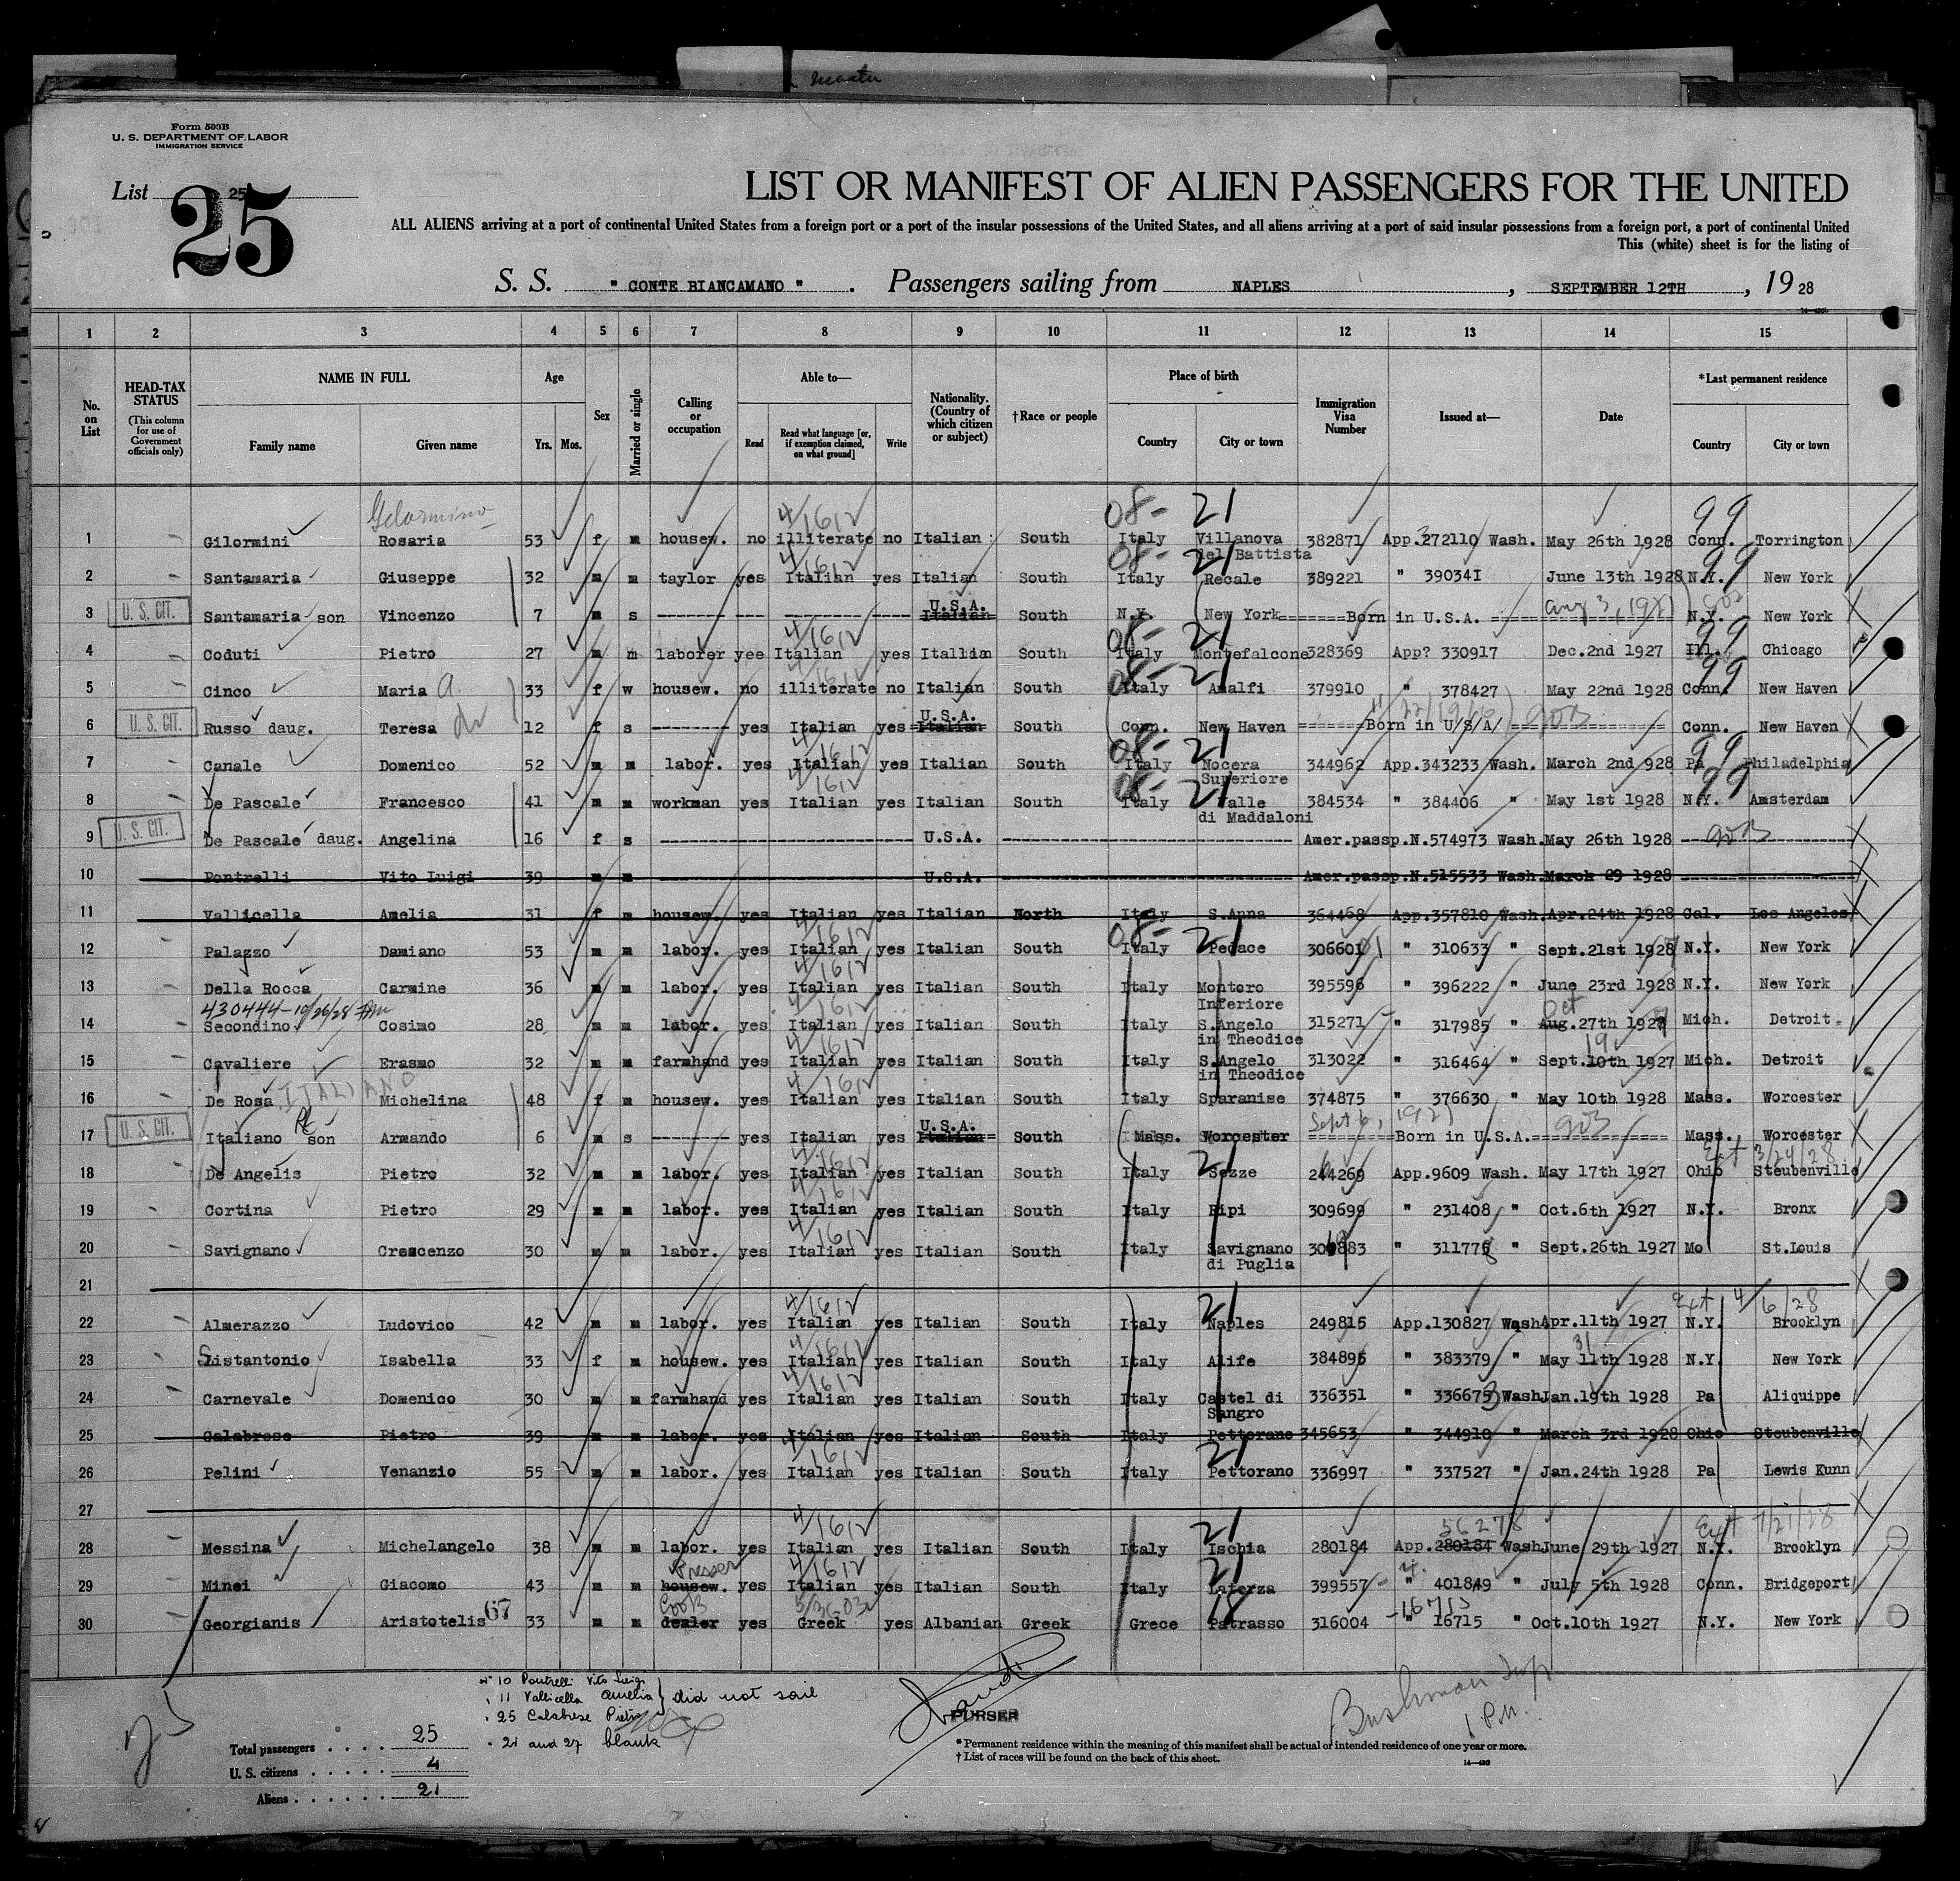 Form 500B
U. S. DEPARTMENT OF LABOR
IMMIGRATION SERVICE
List 25
25
LIST OR MANIFEST OF ALIEN PASSENGERS FOR THE UNITED
ALL ALIENS arriving at a port of continental United States from a foreign port or a port of the insular possessions of the United States, and all aliens arriving at a port of said insular possessions from a foreign port, a port of continental United
This (white) sheet is for the listing of
S. S. " CONTE BIANCAMANO " . Passengers sailing from NAPLES , SEPTEMBER 12TH , 19 28
1 2 3 4 5 6 7 8 9 10 11 12 13 14 15
No. on List
HEAD-TAX STATUS (This column for use of Government officials only)
NAME IN FULL Family name Given name
Age Yrs. Mos.
Sex
Married or single
Calling or occupation
Able to— Read Read what language [or, if exemption claimed, on what ground] Write
Nationality. (Country of which citizen or subject)
†Race or people
Place of birth Country City or town
Immigration Visa Number
Issued at—
Date
*Last permanent residence Country City or town
Gelormino
1 Gilormini Rosaria 53 f m housew. no illiterate no Italian South Italy Villanova del Battista 382871 App.272110 Wash. May 26th 1928 Conn. Torrington
2 Santamaria Giuseppe 32 m m taylor yes Italian yes Italian South Italy Recale 389221 " 39034I June 13th 1928 N.Y. New York
3 U. S. CIT. Santamaria son Vincenzo 7 m s U.S.A. Italian South N.Y. New York Born in U.S.A. N.Y. New York
4 Coduti Pietro 27 m m laborer yee Italian yes Itallian South Italy Montefalcone 328369 App? 330917 Dec.2nd 1927 Ill. Chicago
5 Cinco Maria a. 33 f w housew. no illiterate no Italian South Italy Amalfi 379910 " 378427 May 22nd 1928 Conn. New Haven
6 U. S. CIT. Russo daug. Teresa 12 f s yes Italian yes U.S.A. Italian South Conn. New Haven Born in U/S/A/ Conn. New Haven
7 Canale Domenico 52 m m labor. yes Italian yes Italian South Italy Nocera Superiore 344962 App.343233 Wash. March 2nd 928 Pa Philadelphia
8 De Pascale Francesco 41 m m workman yes Italian yes Italian South Italy Valle di Maddaloni 384534 " 384406 " May 1st 1928 N.Y. Amsterdam
9 U. S. CIT. De Pascale daug. Angelina 16 f s U.S.A. Amer.passp.N.574973 Wash.May 26th 1928
10 Pontrelli Vito Luigi 39 m m U.S.A. Amer.passp.N.515533 Wash.March 29 1928
11 Vallicella Amelia 31 f m housew. yes Italian yes Italian North Italy S.Anna 364468 App.357810 Wash.Apr.24th 1928 Cal. Los Angeles
12 Palazzo Damiano 53 m m labor. yes Italian yes Italian South Italy Pedace 306601 " 310633 " Sept.21st 1928 N.Y. New York
13 Della Rocca Carmine 36 m m labor. yes Italian yes Italian South Italy Montoro Inferiore 395596 " 396222 " June 23rd 1928 N.Y. New York
430444-10/26/28
14 Secondino Cosimo 28 m m labor. yes Italian yes Italian South Italy S.Angelo in Theodice 315271 " 317985 " Oct Aug.27th 1927 Mich. Detroit
15 Cavaliere Erasmo 32 m m farmhand yes Italian yes Italian South Italy S.Angelo in Theodice 313022 " 316464 " Sept.10th 1927 Mich. Detroit
16 De Rosa ITALIANO Michelina 48 f m housew. yes Italian yes Italian South Italy Sparanise 374875 " 376630 " May 10th 1928 Mass. Worcester
17 U. S. CIT. Italiano son Armando 6 m s yes Italian yes U.S.A. Italian South Mass. Worcester Born in U.S.A. Mass. Worcester
18 De Angelis Pietro 32 m m labor. yes Italian yes Italian South Italy Sezze 244269 App.9609 Wash. May 17th 1927 Ohio Steubenville
19 Cortina Pietro 29 m m labor. yes Italian yes Italian South Italy Ripi 309699 " 231408 " Oct.6th 1927 N.Y. Bronx
20 Savignano Crescenzo 30 m m labor. yes Italian yes Italian South Italy Savignano di Puglia " Sept.26th 1927 Mo St.Louis
21
Ext 4/6/28
22 Almerazzo Ludovico 42 m m labor. yes Italian yes Italian South Italy Naples 249815 App.130827 Wash Apr.11th 1927 N.Y. Brooklyn
23 Sistantonio Isabella 33 f m housew. yes Italian yes Italian South Italy Alife 384896 " 383379 " May 11th 1928 N.Y. New York
24 Carnevale Domenico 30 m m farmhand yes Italian yes Italian South Italy Castel di Sangro 336351 " 336673 Wash Jan.19th 1928 Pa Aliquippe
25 Calabrese Pietro 39 m m labor. yes Italian yes Italian South Italy Pettorano 345653 " 344910 " March 3rd 1928 Ohio Steubenville
26 Pelini Venanzio 55 m m labor. yes Italian yes Italian South Italy Pettorano 336997 " 337527 " Jan.24th 1928 Pa Lewis Kunn
27
56278 Ext 7/21/28
28 Messina Michelangelo 38 m m labor. yes Italian yes Italian South Italy Ischia 280184 App.280184 Wash June 29th 1927 N.Y. Brooklyn
Presser
29 Minei Giacomo 43 m m housew. yes Italian yes Italian South Italy Laterza 399557 " 401849 " July 5th 1928 Conn. Bridgeport
Cook
30 Georgianis Aristotelis 67 33 m m dealer yes Greek yes Albanian Greek Grece Patrasso 316004 " 16715 " Oct.10th 1927 N.Y. New York
N° 10 Pontrelli Vito Luigi
" 11 Vallicella Amelia
" 25 Calabrese Pietro
did not sail
" 21 and 27 blank
Total passengers . . . . 25
U. S. citizens . . . . . 4
Aliens . . . . . . 21
PURSER
Bushman Insp
1 P.M.
* Permanent residence within the meaning of this manifest shall be actual or intended residence of one year or more.
† List of races will be found on the back of this sheet.
14—430